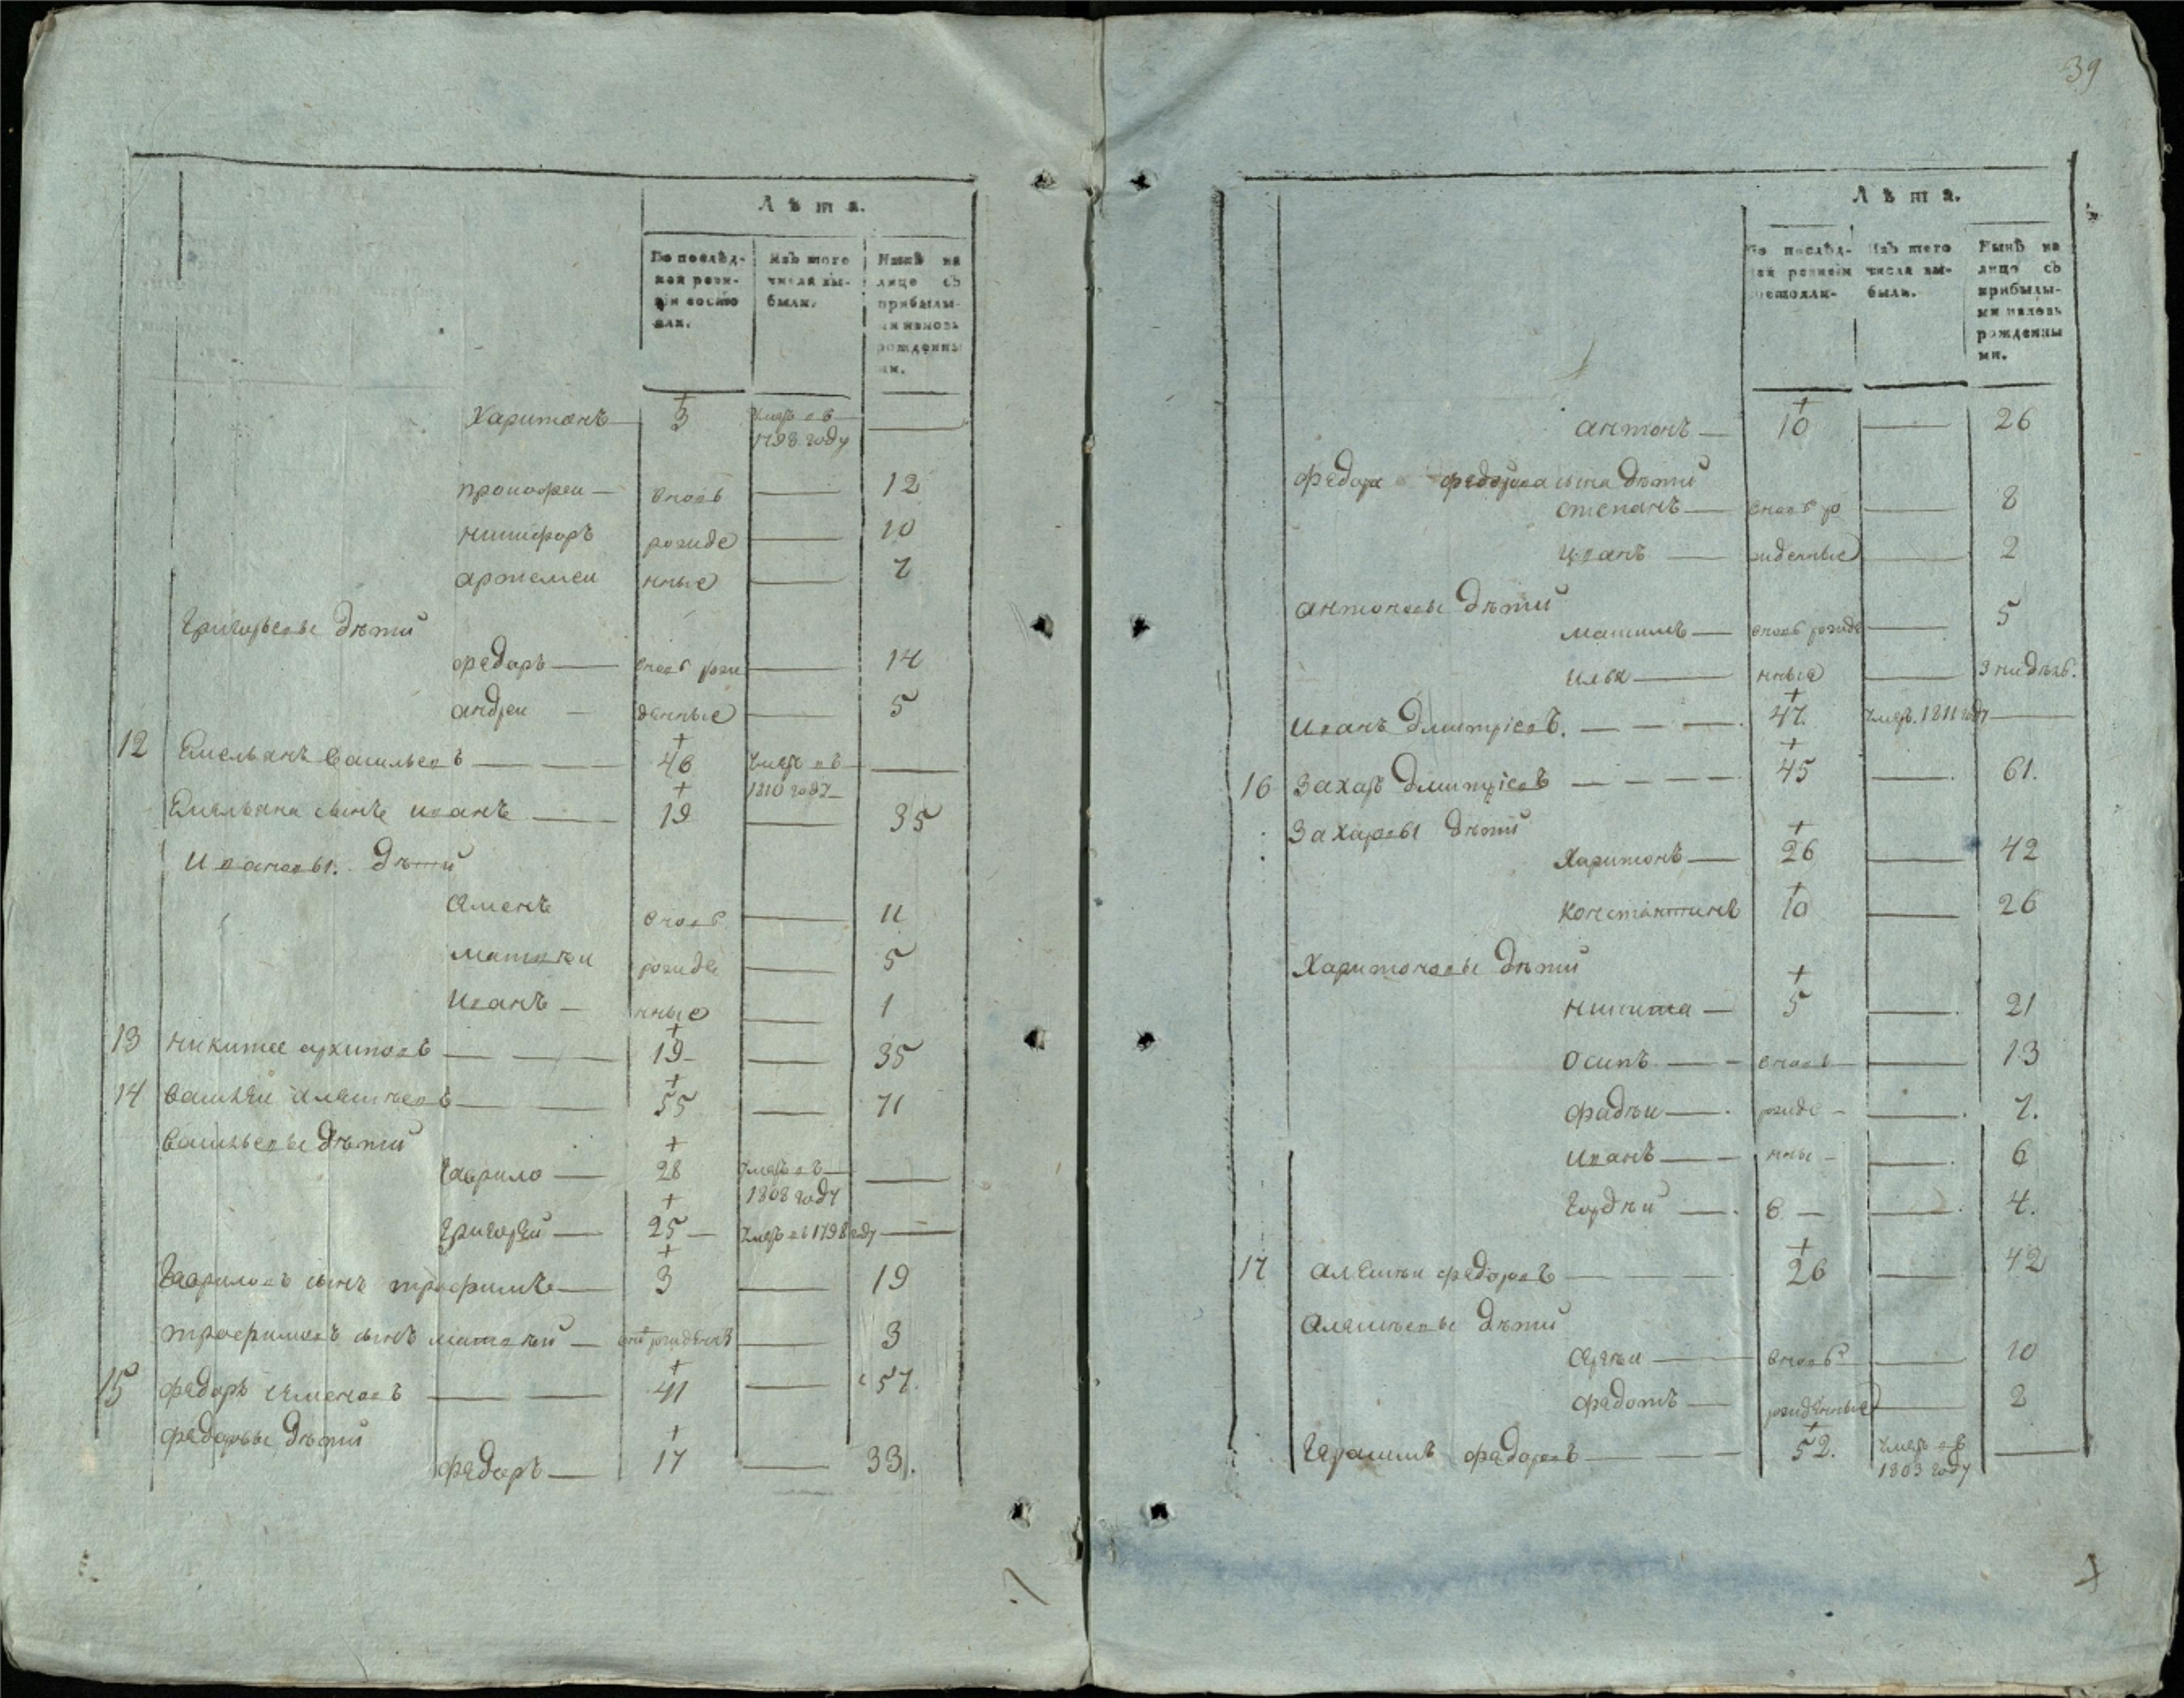 39
Лѣта.
По послѣд-
ней реви-
зіи состо
яли.
Изъ того
числа вы-
были.
Нынѣ на
лице съ
прибылы-
ми и вновь
рожденны
ми.
Харитонъ — 3 умеръ въ 1798 году —
прокофеи — вновь — 12
никифоръ рожде — 10
артемеи нные — 7
Григорьевы дѣти
федоръ — вновь рож — 14
андреи — денные — 5
12 Емельянъ Васильевъ — 46 умеръ въ 1810 году —
Емельяна сынъ иванъ — 19 — 35
Ивановы дѣти
Семенъ вновь — 11
матвѣи рожде — 5
Иванъ — нные — 1
13 никита архиповъ — 19 — 35
14 василеи алексѣевъ — 55 — 71
васильевы дѣти
Гаврило — 28 умеръ въ 1808 году —
Григореи — 25 — умеръ въ 1798 году —
Гавриловъ сынъ трофимъ — 3 — 19
трофимовъ сынъ матвѣи — рожденъ — 3
15 федоръ семеновъ — 41 — 57.
федоровы дѣти
федоръ — 17 — 33.
Лѣта.
По послѣд-
ней ревизіи
состояли-
Изъ того
числа вы-
были.
Нынѣ на
лицо съ
прибылы-
ми и вновь
рожденны
ми.
антонъ — 10 — 26
федора федорова сына дѣти
степанъ — вновь ро — 8
иванъ — жденные — 2
антоновы дѣти
максимъ — вновь рожде — 5
илья — нные — 3 недѣль.
иванъ дмитріевъ. — 47. умеръ. 1811 году —
16 Захаръ дмитріевъ — 45 — 61.
Захаровы дѣти
Харитонъ — 26 — 42
константинъ 10 — 26
Харитоновы дѣти
никита — 5 — 21
осипъ — вновь — 13
фадѣи — рожде — 7.
иванъ — нны — 6
Гордѣи — е — 4.
17 алексѣи федоровъ — 26 — 42
алексѣевы дѣти
сергѣи — вновь — 10
федотъ — рожденные — 2
Герасимъ федоровъ — 52. умеръ въ 1803 году —